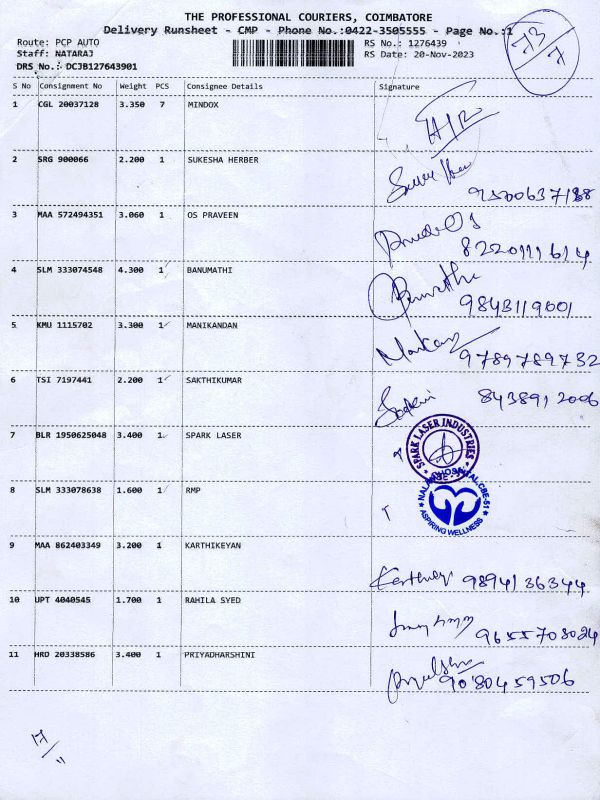 THE PROFESSIONAL COURIERS, COIMBATORE
Delivery Runsheet - CMP - Phone No.:0422-3505555 - Page No.:1
73/7
Route: PCP AUTO RS No.: 1276439
Staff: NATARAJ RS Date: 20-Nov-2023
DRS No.: DCJB127643901
S No Consignment No Weight PCS Consignee Details Signature
1 CGL 20037128 3.350 7 MINDOX
2 SRG 900066 2.200 1 SUKESHA HERBER
9500637188
3 MAA 572494351 3.060 1 OS PRAVEEN
8220111614
4 SLM 333074548 4.300 1 BANUMATHI
9843119001
5 KMU 1115702 3.300 1 MANIKANDAN
9789789732
6 TSI 7197441 2.200 1 SAKTHIKUMAR 8438912006
7 BLR 1950625048 3.400 1 SPARK LASER
SPARK LASER INDUSTRIES
8 SLM 333078638 1.600 1 RMP
HOSPITAL, CBE-51
ASPIRING WELLNESS
9 MAA 862403349 3.200 1 KARTHIKEYAN
9894136344
10 UPT 4040545 1.700 1 RAHILA SYED
9655708024
11 HRD 20338586 3.400 1 PRIYADHARSHINI
9080459506
17/11